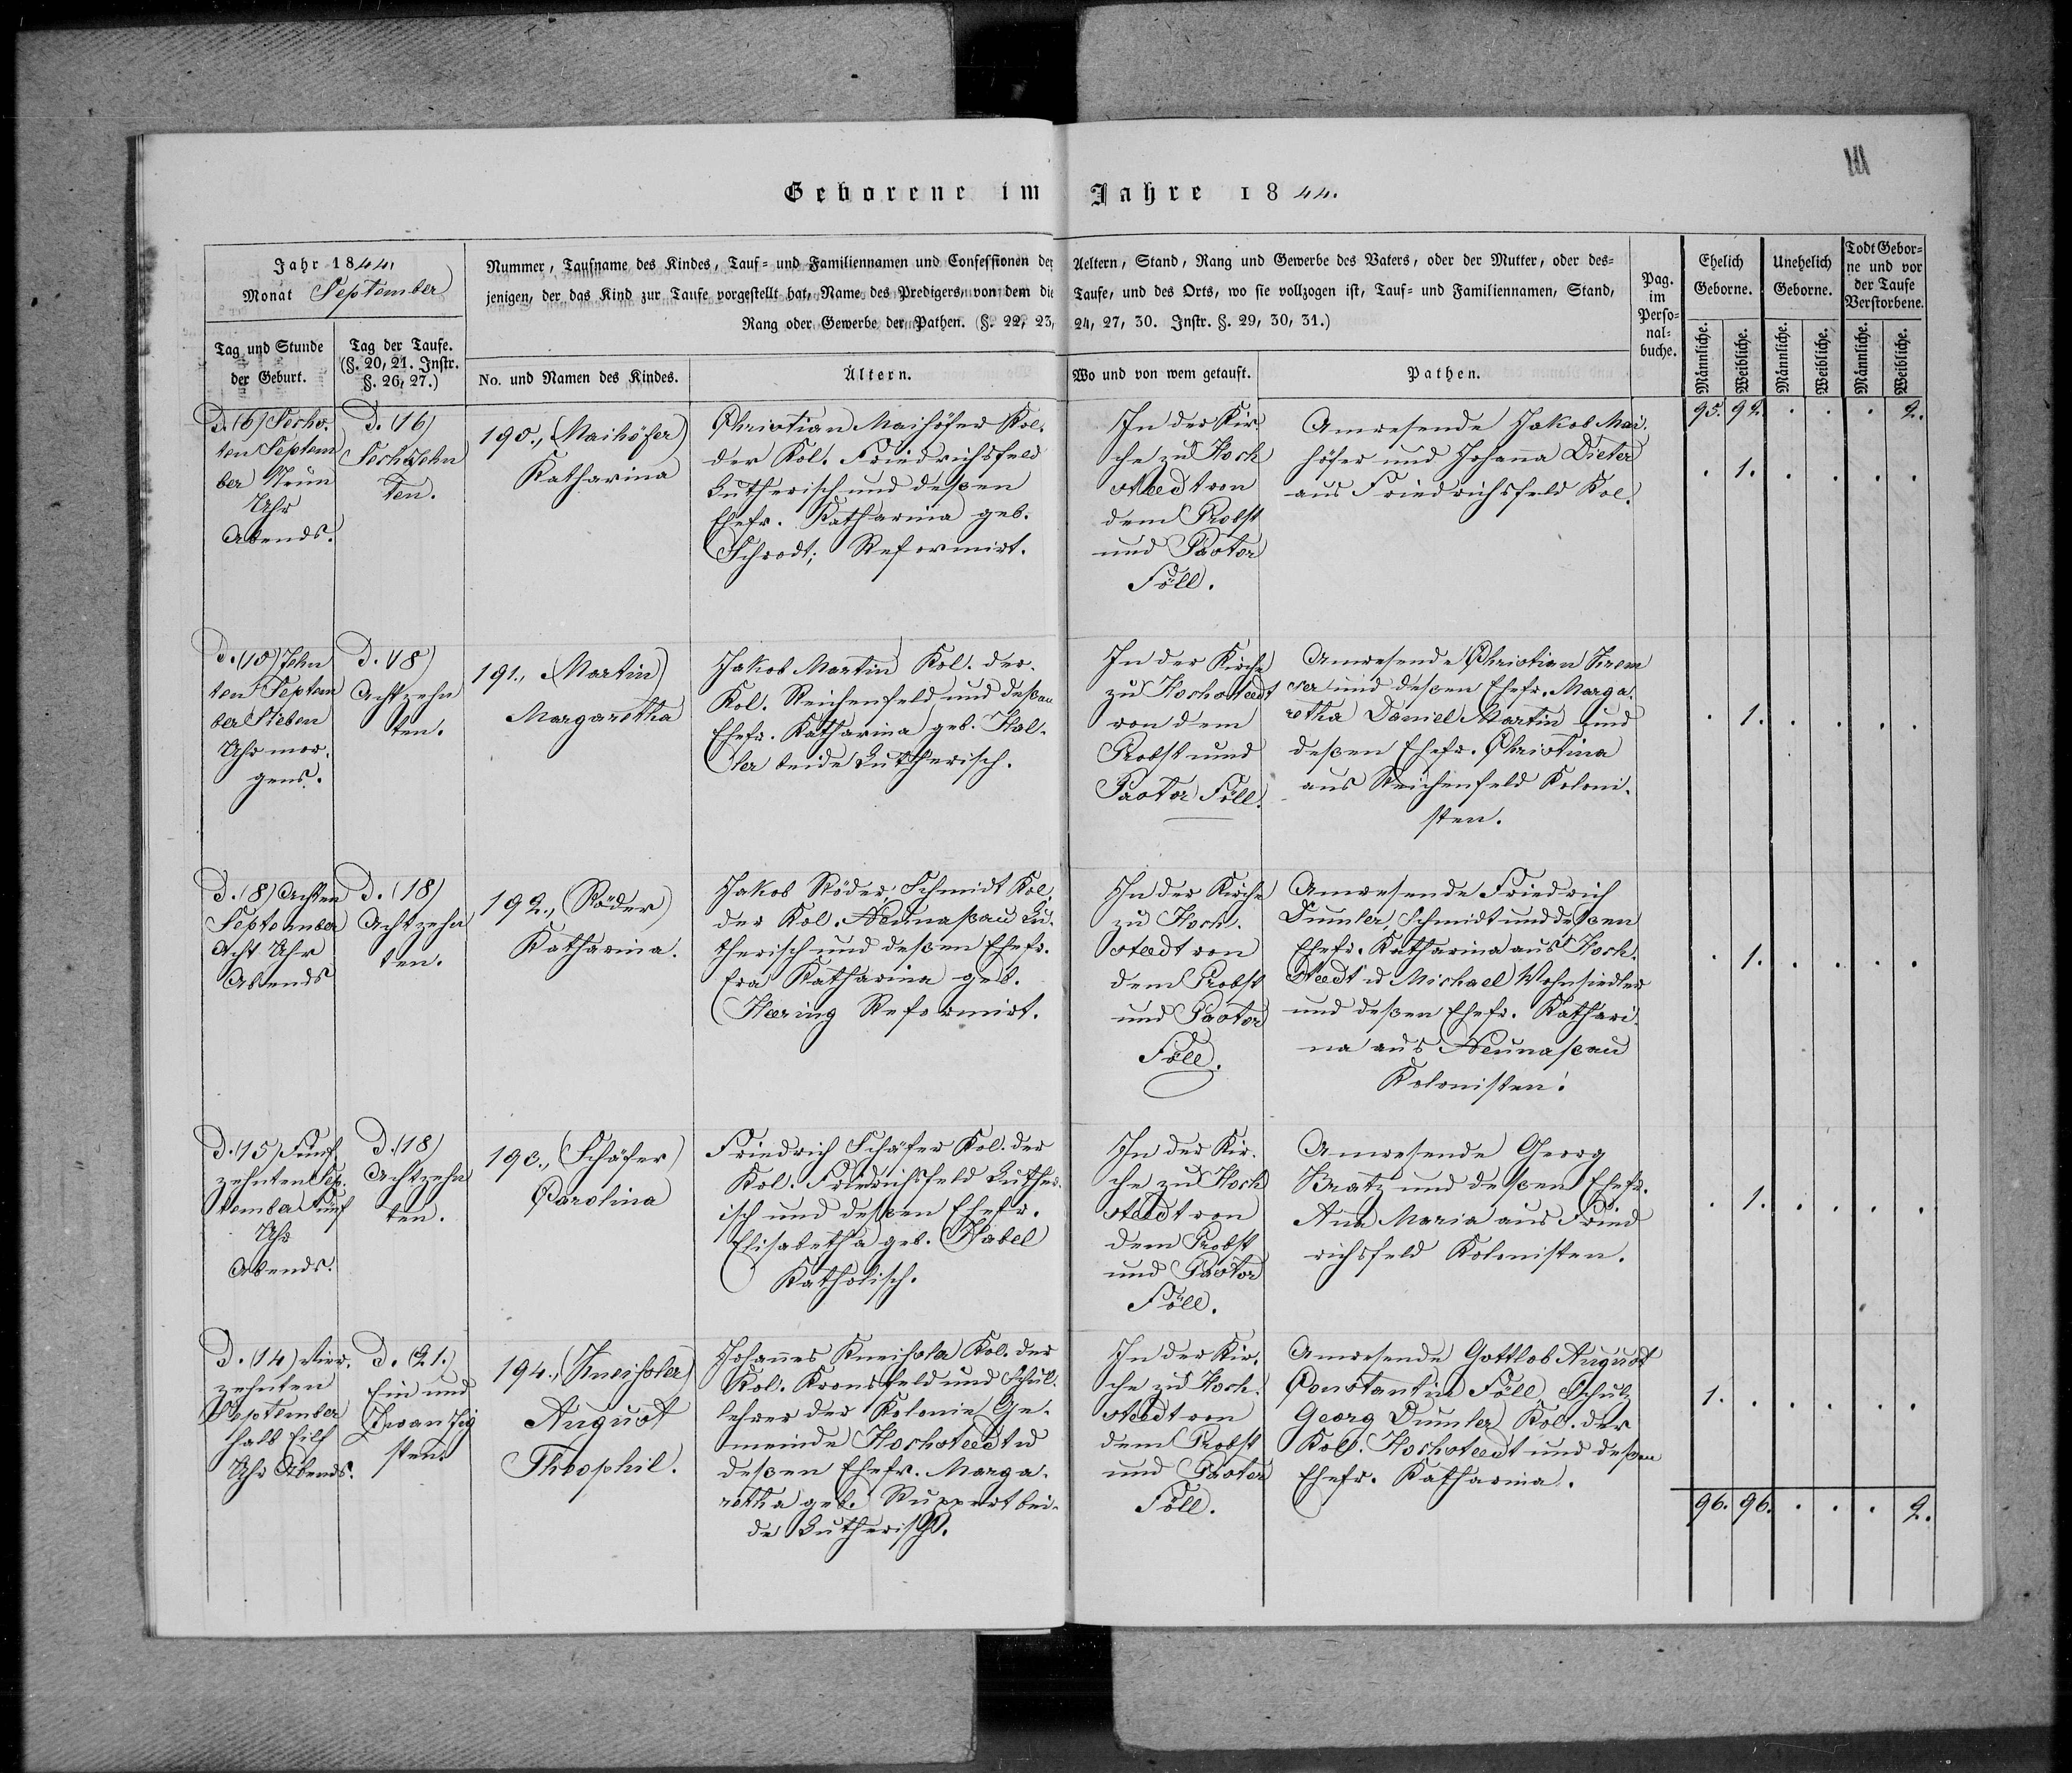 Geborene im Jahre 1844.
Jahr 1844,
Monat September
Nummer, Taufname des Kindes, Tauf- und Familiennamen und Confessionen der Aeltern, Stand, Rang und Gewerbe des Vaters, oder der Mutter, oder des-
jenigen, der das Kind zur Taufe vorgestellt hat, Name des Predigers, von dem die Taufe, und des Orts, wo sie vollzogen ist, Tauf- und Familiennamen, Stand,
Rang oder Gewerbe der Pathen. (§. 22, 23, 24, 27, 30. Instr. §. 29, 30, 31.)
Tag und Stunde
der Geburt.
Tag der Taufe.
(§. 20, 21. Instr.
§. 26, 27.)
No. und Namen des Kindes.
Ältern.
Wo und von wem getauft.
Pathen.
Pag.
im
Perso-
nal-
buche.
Ehelich
Geborne.
Unehelich
Geborne.
Todt Gebor-
ne und vor
der Taufe
Verstorbene.
Männliche.
Weibliche.
Männliche.
Weibliche.
Männliche.
Weibliche.
95. 92. . . . 2.
D. (6) Sechs-
ten Septem
ber Neun
Uhr
Abends.
D. (16)
Sechszehn
ten.
190., (Maihöfer)
Katharina
Christian Maihöfer Kol.
der Kol. Friedrichsfeld
Lutherisch und deßen
Ehefr. Katharina geb.
Schrodt; Reformirt.
In der Kir
che zu Hoch
staedt von
dem Probst
und Pastor
Föll.
Anwesende Jakob Mai-
höfer und Johanna Dieter
aus Friedrichsfeld Kol.
. 1. . . . .
D. (10) Zehn
ten Septem
ber Sieben
Uhr mor-
gens.
D. (18)
Achtzehn
ten.
191., (Martin)
Margaretha
Jakob Martin Kol. der
Kol. Reichenfeld und deßen
Ehefr. Katharina geb. Hal-
ler beide Lutherisch.
In der Kirche
zu Hochstaedt
von dem
Probst und
Pastor Föll.
Anwesende Christian Krem
ser und deßen Ehefr. Marga-
retha Daniel Martin und
deßen Ehefr. Christina
aus Reichenfeld Koloni-
sten.
. 1. . . . .
D. (8) Achten
September
Acht Uhr
Abends
D. (18)
Achtzehn
ten.
192., (Röder)
Katharina.
Jakob Röder Schmidt Kol.
der Kol. Neunaßau Lu-
therisch und deßen Ehefr.
Eva Katharina geb.
Heering Reformirt.
In der Kirche
zu Hoch-
staedt von
dem Probst
und Pastor
Föll.
Anwesende Friedrich
Dumler, Schmidt und deßen
Ehefr. Katharina aus Hoch-
staedt u Michael Wohnsiedler
und deßen Ehefr. Kathari-
na aus Neunaßau
Kolonisten.
. 1. . . . .
D. (15) Fünf
zehnten Sep-
tember Fünf
Uhr
Abends.
D. (18)
Achtzehn
ten.
193., (Schäfer)
Carolina
Friedrich Schäfer Kol. der
Kol. Friedrichsfeld Luther-
isch und deßen Ehefr.
Elisabetha geb. Habel
Katholisch.
In der Kir-
che zu Hoch
staedt von
dem Probst
und Pastor
Föll.
Anwesende Georg
Kratz und deßen Ehefr.
Ana Maria aus Fried
richsfeld Kolonisten.
. 1. . . . .
D. (14) Vier-
zehnten
September
halb Eilf
Uhr Abends.
D. (21.)
Ein und
Zwanzig
sten.
194., (Kneißler)
August
Theophil.
Johannes Kol. der
Kol. Kronsfeld und Schul-
lehrer der Kolonie Ge-
meinde Hochstaedt u
deßen Ehefr. Marga-
retha geb. Ruppert bei-
de Lutherisch.
In der Kir-
che zu Hoch-
staedt von
dem Probst
und Pastor
Föll.
Anwesende Gottlob August
Constantin Föll, Schulz
Georg Dumler Kol. der
Kol. Hochstaedt und deßen
Ehefr. Katharina.
1. . . . . .
96. 96. . . . 2.